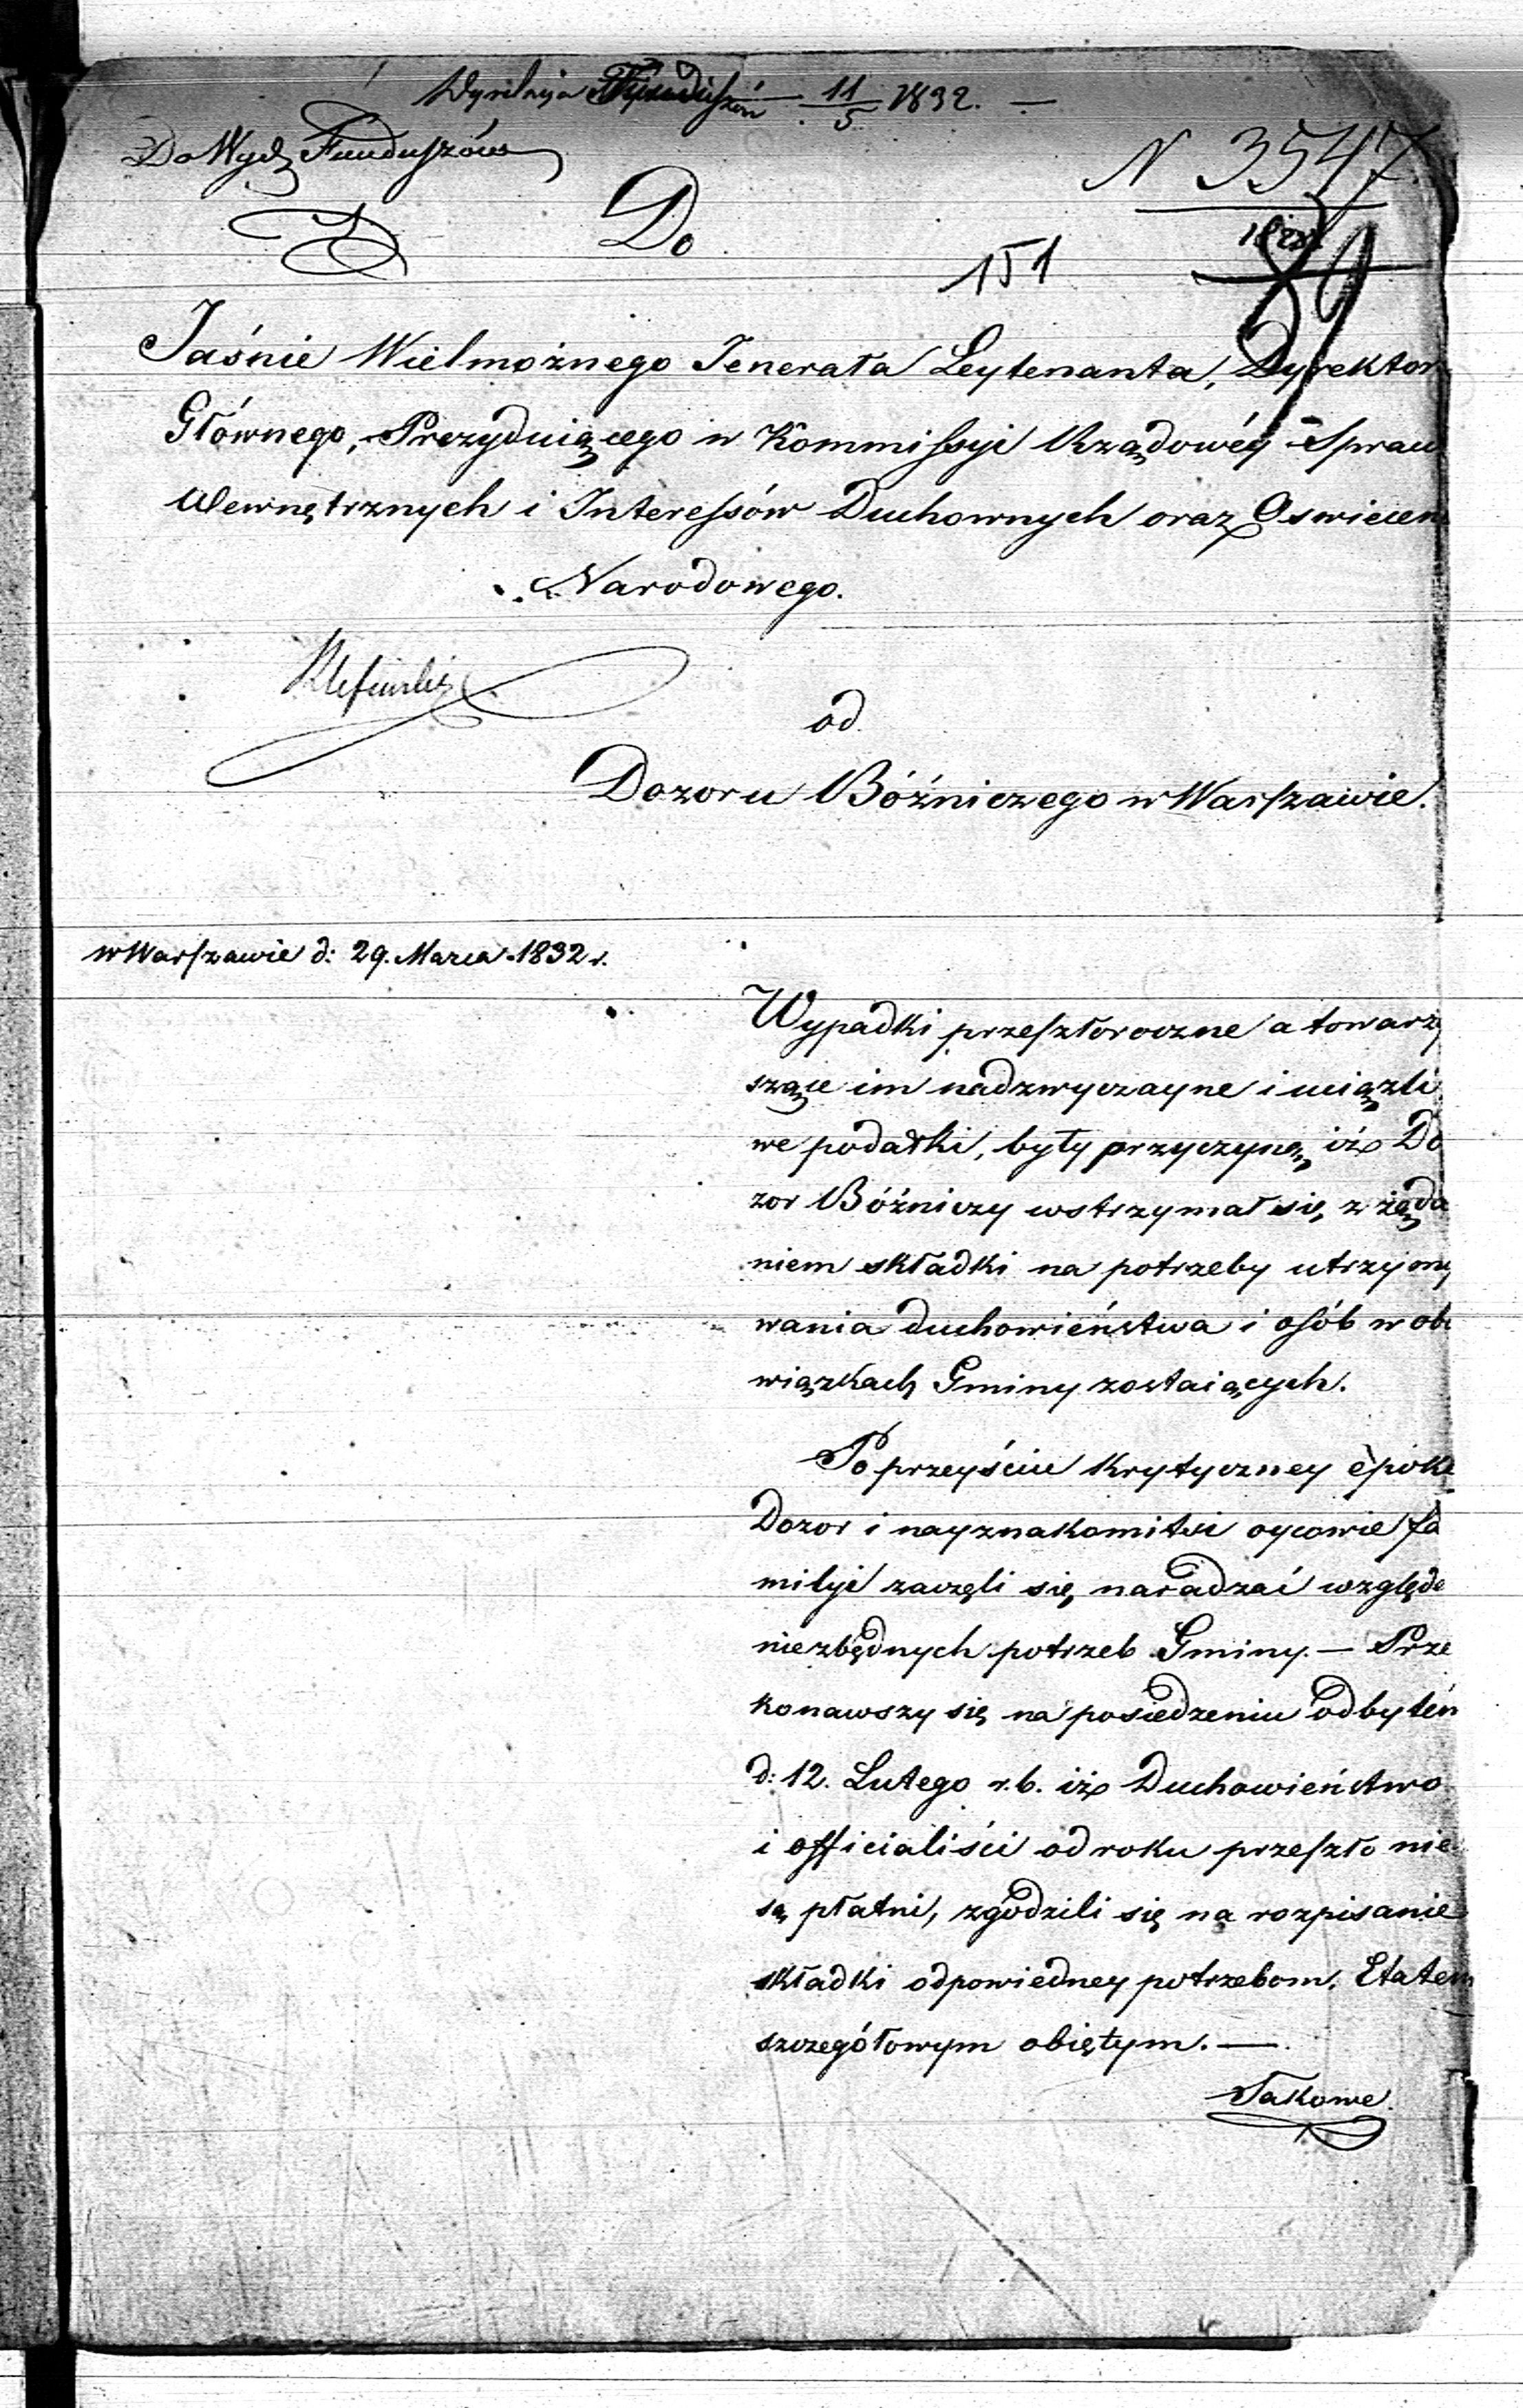 11/5 1832. —
Do Wydz Funduszów
N 3547
Do
151
89
Jaśnie Wielmożnego Jenerała Leytenanta, Dyrektor
Głównego, Prezyduiącego w Kommissyi Rządowéy Spraw
Wewnętrznych i Interessów Duchownych oraz Oswiecen
Narodowego.
od
Dozoru Bóźniczego w Warszawie.
w Warszawie d: 29. Marca 1832 r.
Wypadki przeszłoroczne a towarzy
szące im nadzwyczayne i uciążli
we podatki, były przyczyną, iż Do
zor Bóźniczy wstrzymał się, z żąda
niem składki na potrzeby utrzymy
wania duchowieństwa i osób w obo
wiązkach Gminy zostaiących.
Po przeyściu krytyczney épok
Dozor i nayznakomitsi oycowie fa
milyi zaczęli się, naradzać względe
niezbędnych potrzeb Gminy. — Prze
konawszy się na posiedzeniu odbytém
d: 12. Lutego r. b. iż Duchowieństwo
i officialiści od roku przeszło nie
są, płatni, zgodzili się na rozpisanie
składki odpowiedney potrzebom, Etatem
szczegółowym obiętym. —
Takowe